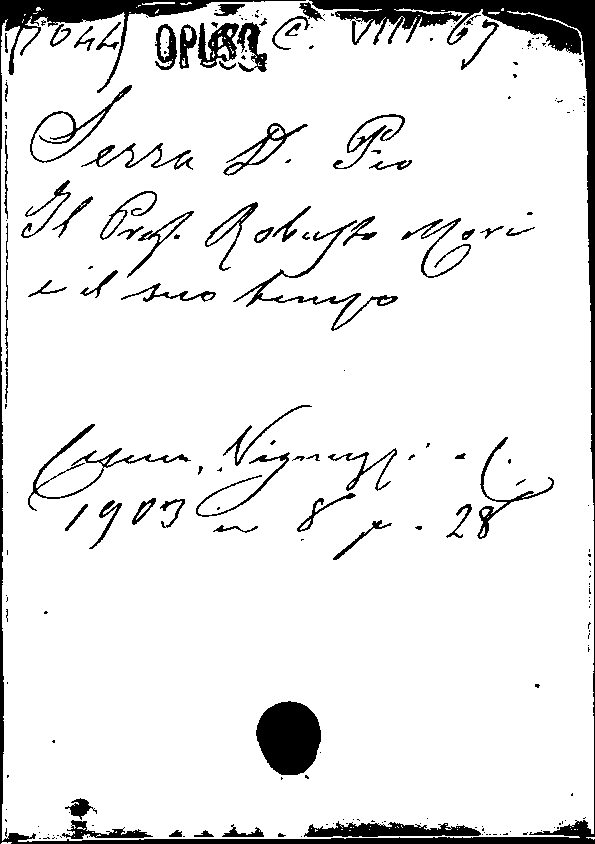 (7044) OPUSC. C. VIII. 67
Serra D. Pio
Il Prof. Robusto Mori
e il suo tempo
Cesena, Vignuzzi e C.
1903 in 8° p. 28